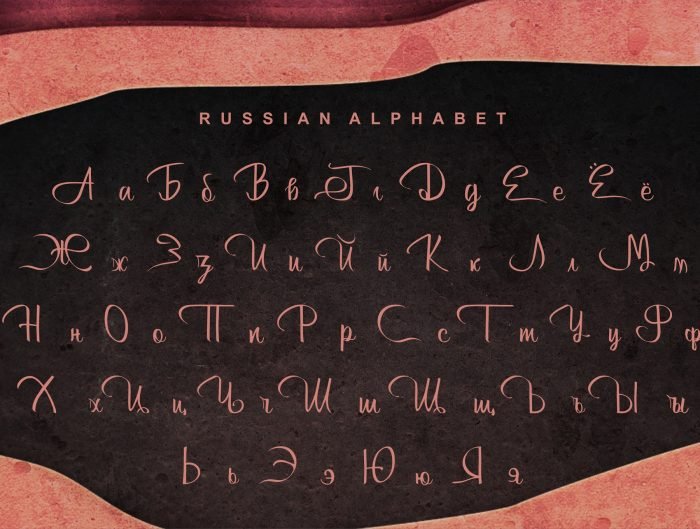 RUSSIAN ALPHABET
А а Б б В в Г г Д д Е е Ё ё
Ж ж З з И и Й й К к Л л М м
Н н О о П п Р р С с Т т У у Ф ф
Х х Ц ц Ч ч Ш ш Щ щ Ъ ъ Ы ы
Ь ь Э э Ю ю Я я